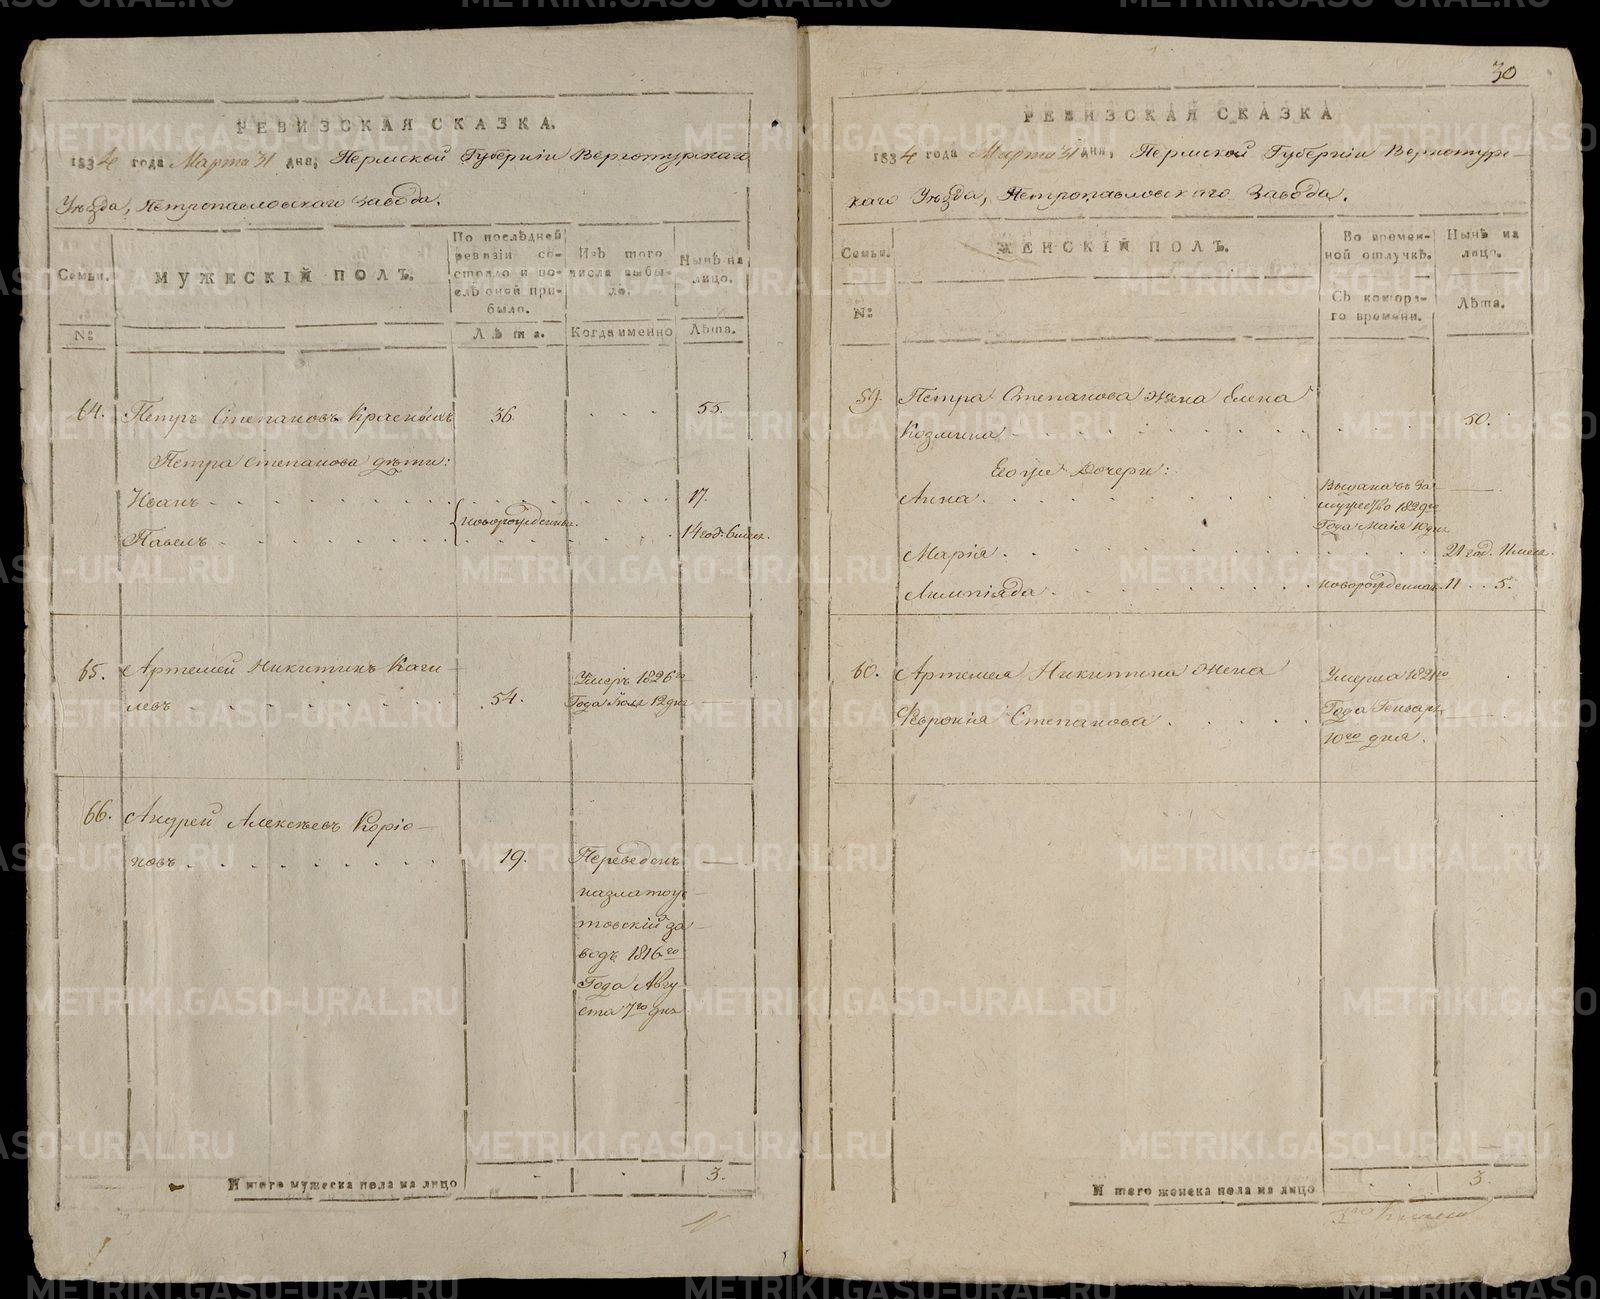 РЕВИЗСКАЯ СКАЗКА.
1834 года Марта 31 дня, Пермской Губерніи Верхотурскаго
Уѣзда, Петропавловскаго Завода.
Семьи.
МУЖЕСКІЙ ПОЛЪ.
По послѣдней ревизіи состояло и послѣ оной прибыло.
Изъ того числа выбыло.
Нынѣ на лицо.
№:
Лѣта.
Когда именно
Лѣта.
64. Петръ Степановъ Красныхъ 36. . . . 55.
Петра Степанова дѣти:
Иванъ 17.
новорожденны.
Павелъ 14 год. 6 мѣсяц.
65. Артемей Никитинъ Каги-
левъ 54. Умеръ 1826го
Года Іюля 12 дня —
66. Андрей Алексѣевъ Коріо-
новъ 19. Переведенъ —
назлатоус-
товскій за-
водъ 1816го
Года Авгу
ста 7го дня
Итого мужеска пола на лицо 3.
30
РЕВИЗСКАЯ СКАЗКА
1834 года Марта 31 дня, Пермской Губерніи Верхотурс-
каго Уѣзда, Петропавловскаго Завода.
Семьи.
ЖЕНСКІЙ ПОЛЪ.
Во временной отлучкѣ.
Нынѣ на лицо.
№:
Съ котораго времени.
Лѣта.
59. Петра Степанова жена Елена
Козмина 50.
Егоже Дочери:
Анна Выдана въ за-
мужество 1829го
Года Маія 10 дня —
Марія 21 год. 11 меся.
Лимпіяда новорожденная 11 . . 5.
60. Артемея Никитина жена Умерла 1821го
Февронія Степанова Года Генваря
10го дня. —
Итого женска пола на лицо 3
METRIKI.GASO-URAL.RU